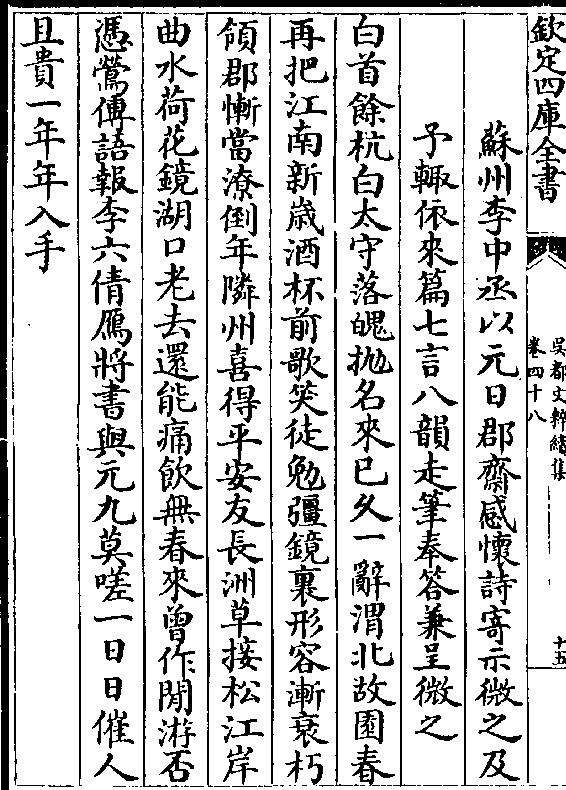 欽定四庫全書
吳都文粹續集
卷四十八
十五
蘇州李中丞以元日郡齋感懷詩寄示微之及
予輙依來篇七言八韻走筆奉答兼呈微之
白首餘杭白太守落魄抛名來已久一辭渭北故園春
再把江南新歲酒杯前歌笑徒勉彊鏡裏形容漸衰朽
領郡慚當潦倒年隣州喜得平安友長洲草接松江岸
曲水荷花鏡湖口老去還能痛飲無春來曾作閒游否
憑鶯傳語報李六倩鴈將書與元九莫嗟一日日催人
且貴一年年入手